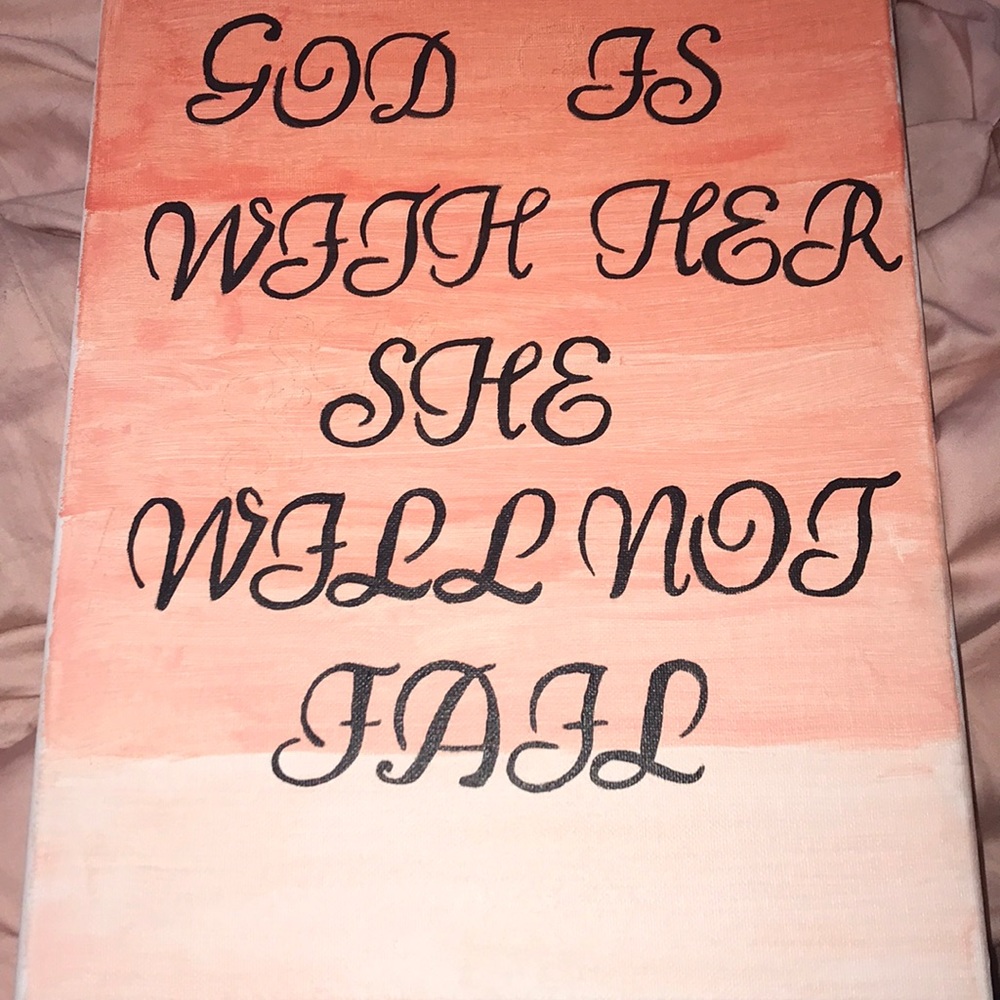 GOD IS
WITH HER
SHE
WILL NOT
FAIL